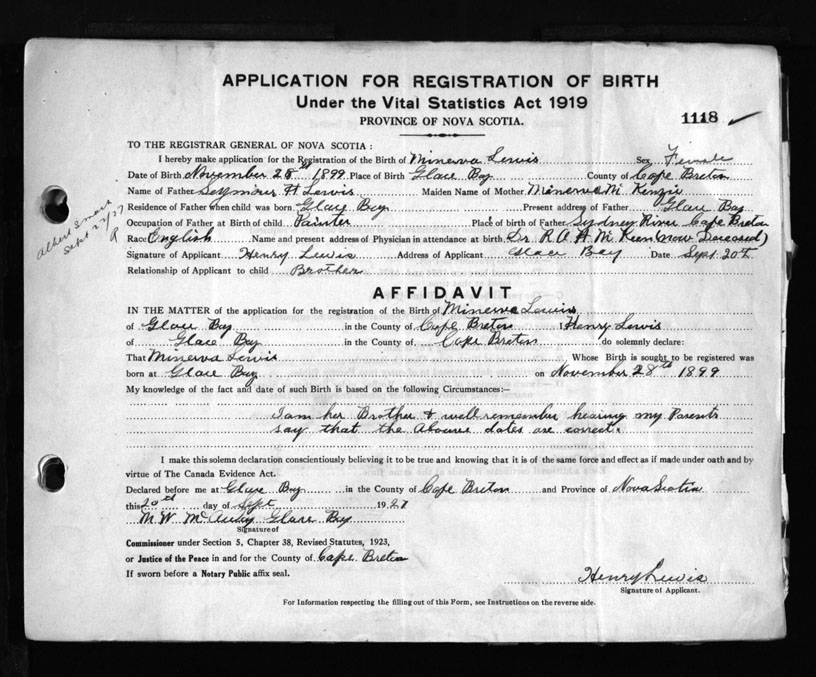 APPLICATION FOR REGISTRATION OF BIRTH
Under the Vital Statistics Act 1919
PROVINCE OF NOVA SCOTIA.
1118
TO THE REGISTRAR GENERAL OF NOVA SCOTIA :
I hereby make application for the Registration of the Birth of Minerva Lewis Sex Female
Date of Birth November 28th 1899 Place of Birth Glace Bay County of Cape Breton
Name of Father Seymour H Lewis Maiden Name of Mother Minerva McKenzie
Residence of Father when child was born Glace Bay Present address of Father Glace Bay
Occupation of Father at Birth of child Painter Place of Birth of Father Sydney River Cape Breton
Race English Name and present address of Physician in attendance at birth Dr. R A H McKeen (now Deceased)
Signature of Applicant Henry Lewis Address of Applicant Glace Bay Date Sept 20th
Relationship of Applicant to child Brother
Sept 27/27
AFFIDAVIT
IN THE MATTER of the application for the registration of the Birth of Minerva Lewis
of Glace Bay in the County of Cape Breton I Henry Lewis
of Glace Bay in the County of Cape Breton do solemnly declare:
That Minerva Lewis Whose Birth is sought to be registered was
born at Glace Bay on November 28th 1899
My knowledge of the fact and date of such Birth is based on the following Circumstances:–
I am her Brother & well remember hearing my Parents
say that the Above dates are correct.
I make this solemn declaration conscientiously believing it to be true and knowing that it is of the same force and effect as if made under oath and by
virtue of The Canada Evidence Act.
Declared before me at Glace Bay in the County of Cape Breton and Province of Nova Scotia
this 20th day of Sept 1927
M. W. Glace Bay
Signature of
Commissioner under Section 5, Chapter 38, Revised Statutes, 1923,
or Justice of the Peace in and for the County of Cape Breton
If sworn before a Notary Public affix seal.
Henry Lewis
Signature of Applicant.
For Information respecting the filling out of this Form, see Instructions on the reverse side.